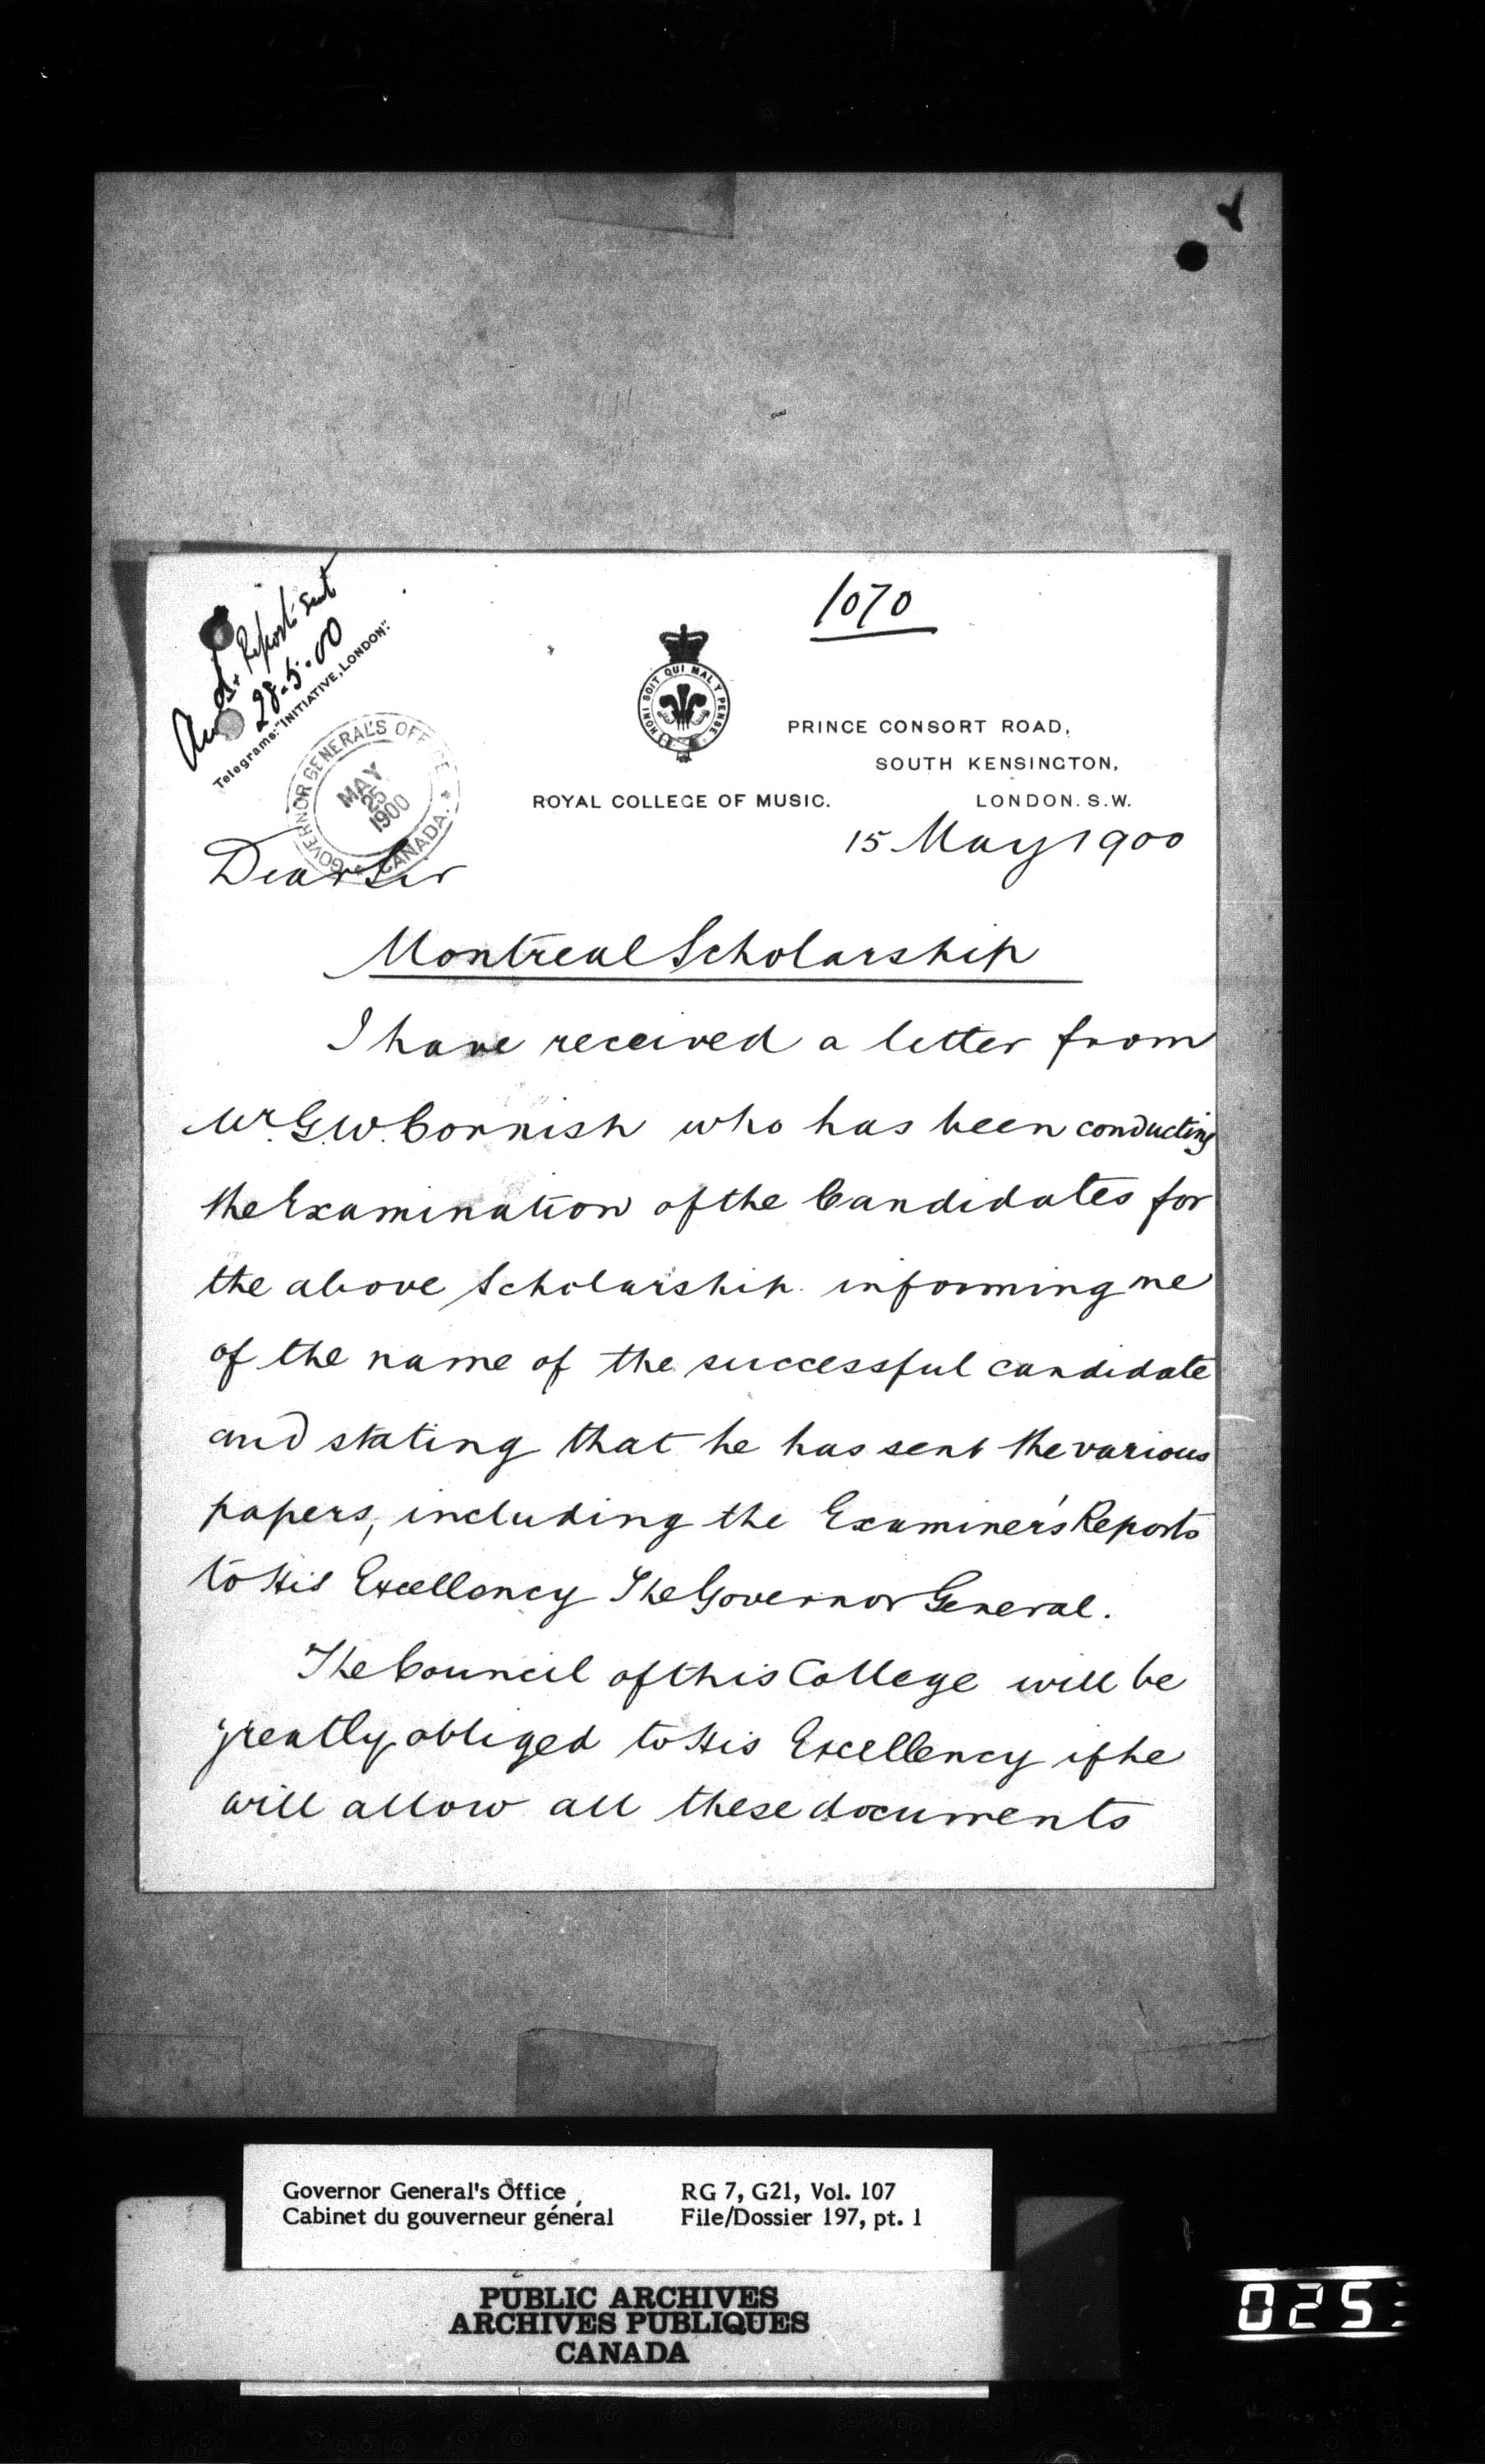 1070
Ans. Reports sent
28-5-00
Telegrams: "INITIATIVE, LONDON."
GOVERNOR GENERAL'S OFFICE
MAY
25
1900
CANADA.
HONI SOIT QUI MAL Y PENSE
PRINCE CONSORT ROAD,
SOUTH KENSINGTON,
ROYAL COLLEGE OF MUSIC. LONDON. S.W.
15 May 1900
Dear Sir
Montreal Scholarship
I have received a letter from
Mr. G.W. Cornish who has been conducting
the Examination of the Candidates for
the above Scholarship. informing me
of the name of the successful candidate
and stating that he has sent the various
papers, including the Examiner's Reports
to His Excellency The Governor General.
The Council of this College will be
greatly obliged to His Excellency if he
will allow all these documents
Governor General's Office RG 7, G21, Vol. 107
Cabinet du gouverneur général File/Dossier 197, pt. 1
PUBLIC ARCHIVES
ARCHIVES PUBLIQUES
CANADA
025